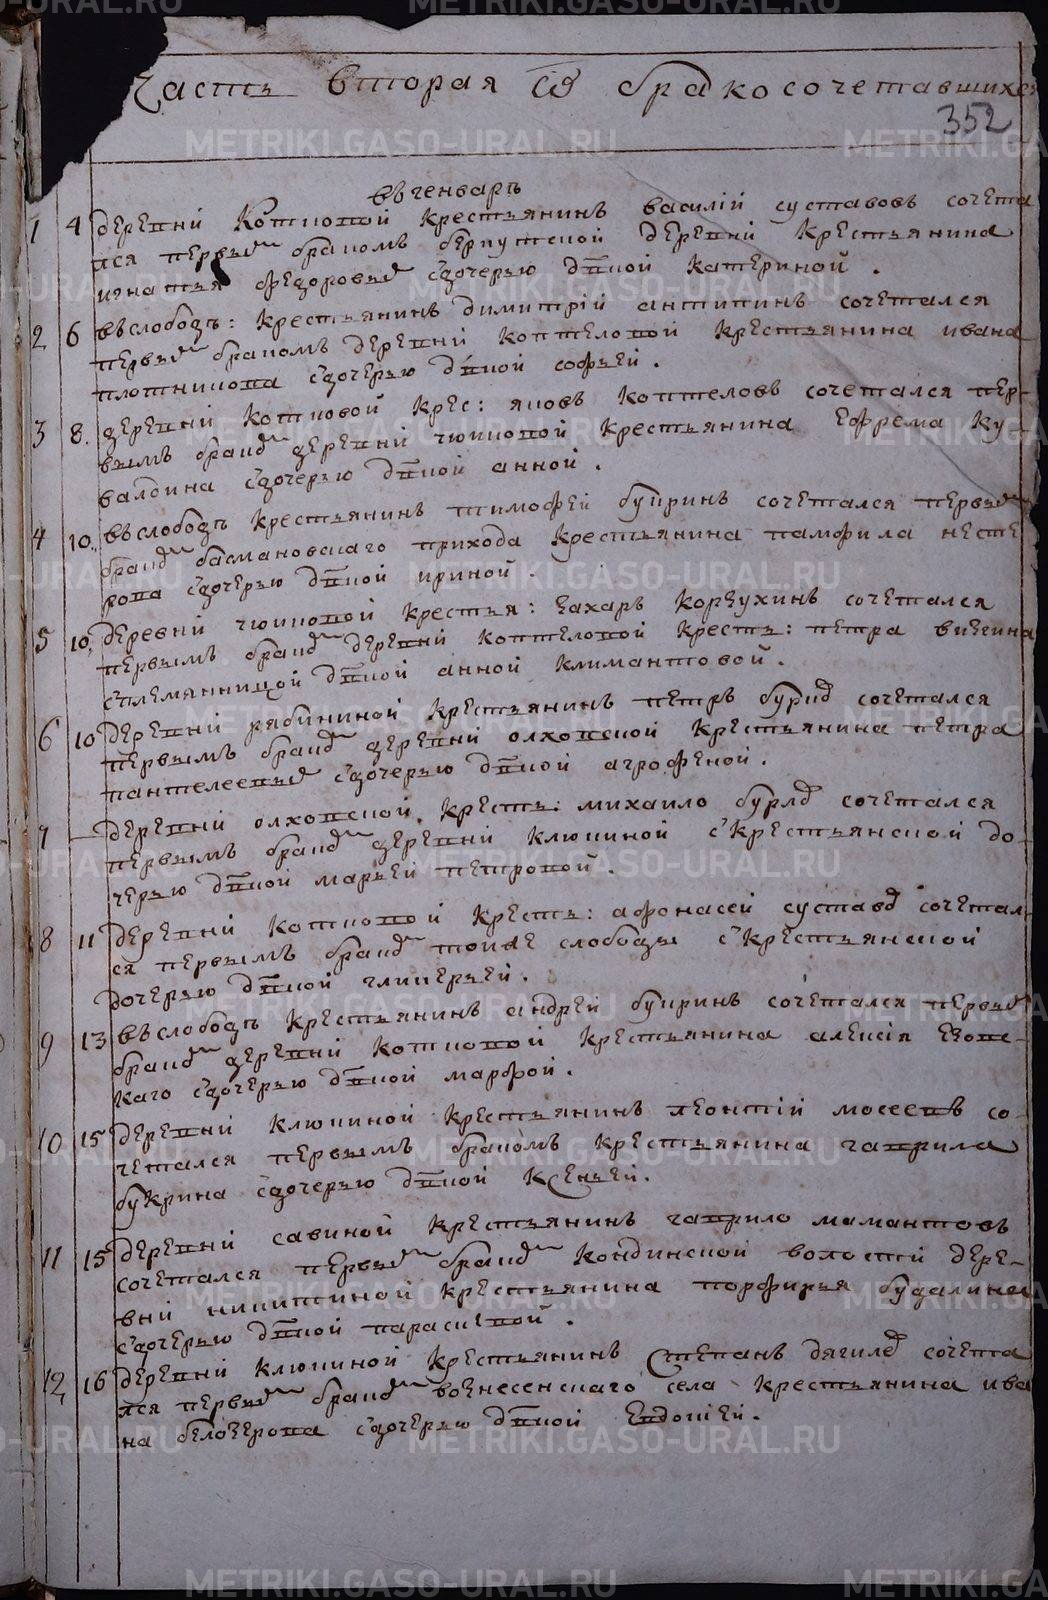 Часть вторая ѿ бракосочетавшихся
352
въ генварѣ
1 4 деревни Котковой крестьянинъ василій суставовъ сочета
лся первымъ бракомъ беркутской деревни крестьянина
игнатья федоровыхъ здочерью дѣвкой катериной.
2 6 въслободѣ: крестьянинъ димитрій антипинъ сочетался
первымъ бракомъ деревни коптеловой крестьянина ивана
плотникова здочерью дѣвкой софьей.
3 8. деревни котковой крес: яковъ коптеловъ сочетался пер-
вымъ бракомъ деревни чюпковой крестьянина Ефрема ку-
валдина здочерью дѣвкой анной.
4 10. въслободѣ крестьянинъ тимофей букринъ сочетался первымъ
бракомъ басмановскаго прихода крестьянина памфила несте
рова здочерью дѣвкой ириной.
5 10. деревни чюпковой крестья: захаръ корзухинъ сочетался
первымъ бракомъ деревни коптеловой кресть: петра визгина
съплемянницой дѣвкой анной климантовой.
6 10 деревни рябининой крестьянинъ петръ бурковъ сочетался
первымъ бракомъ деревни олховской крестьянина петра
пантелеевыхъ здочерью дѣвкой агрофеной.
7 — деревни олховской кресть: михаило бурковъ сочетался
первымъ бракомъ деревни клюкиной съкрестьянской до-
черью дѣвкой марьей петровой.
8 11 деревни котковой кресть: афонасей суставовъ сочетал-
ся первымъ бракомъ тойже слободы съкрестьянской
дочерью дѣвкой гликерьей.
9 13 въслободѣ крестьянинъ андрей букринъ сочетался первымъ
бракомъ деревни котковой крестьянина алексія
каго здочерью дѣвкой марфой.
10 15 деревни клюкиной крестьянинъ леонтій мосеевъ со-
четался первымъ бракомъ крестьянина гаврила
букрина здочерью дѣвкой ксеньей.
11 15 деревни савиной крестьянинъ гаврило мамантовъ
сочетался первымъ бракомъ кондинской волости дере-
вни никитиной крестьянина порфирья будалина
здочерью дѣвкой параскевой.
12 16 деревни клюкиной крестьянинъ степанъ дягилевъ сочета
лся первымъ бракомъ вознесенскаго села крестьянина ива
на белозерова здочерью дѣвкой Евдокіей.